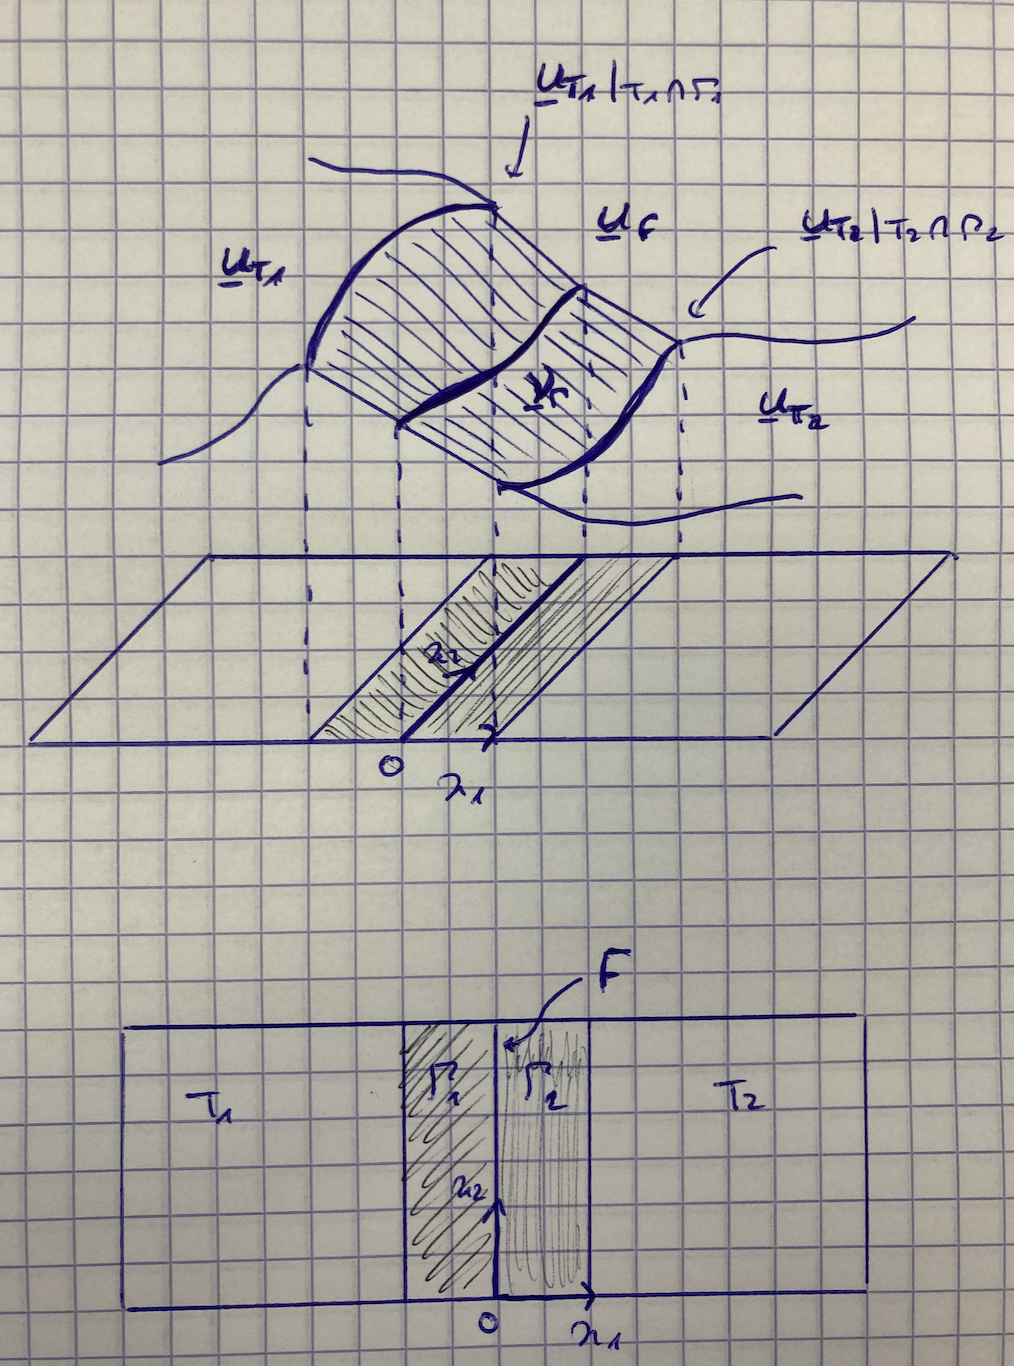 u_T1|T1∩Γ1
u_F
u_T2|T2∩Γ2
u_T1
u_T2
x2
0
x1
F
T1
Γ1
Γ2
T2
x2
0
x1